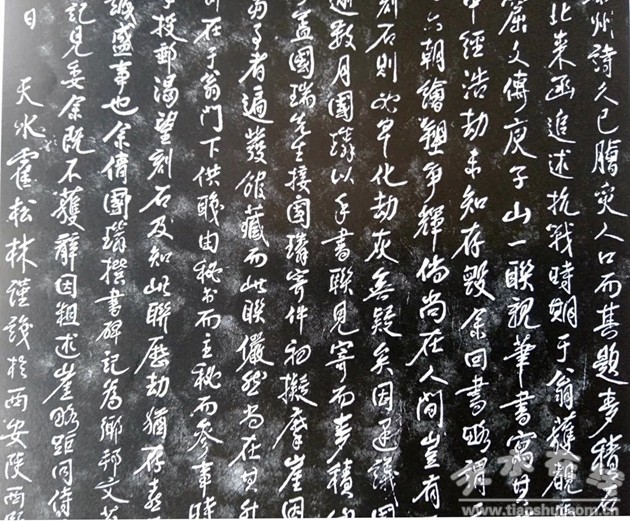 州詩久已膾炙人口而其題麥積石
北來函追述抗戰時期于翁獲觀
窟文傳庾子山一聯親筆書寫其
中經浩劫未知存毀余回書略謂
六朝繪塑爭輝倘尚在人間豈有
刻石則早化劫灰無疑矣因建議國
逾數月國璘以手書聯見寄而麥積
孟國瑞先生接國璘寄件初擬摩崖因
者遍發館藏而此聯儼然尚在其
在于翁門下供職由秘書而主秘而參事時
投郵渴望刻石及知此聯歷劫猶存喜
誠盛事也余倩國璘撰書碑記為鄉邦文
記見委余既不獲辭因粗述崖略
日 天水霍松林謹識於西安陝西
天水在线
www.tianshui.com.cn